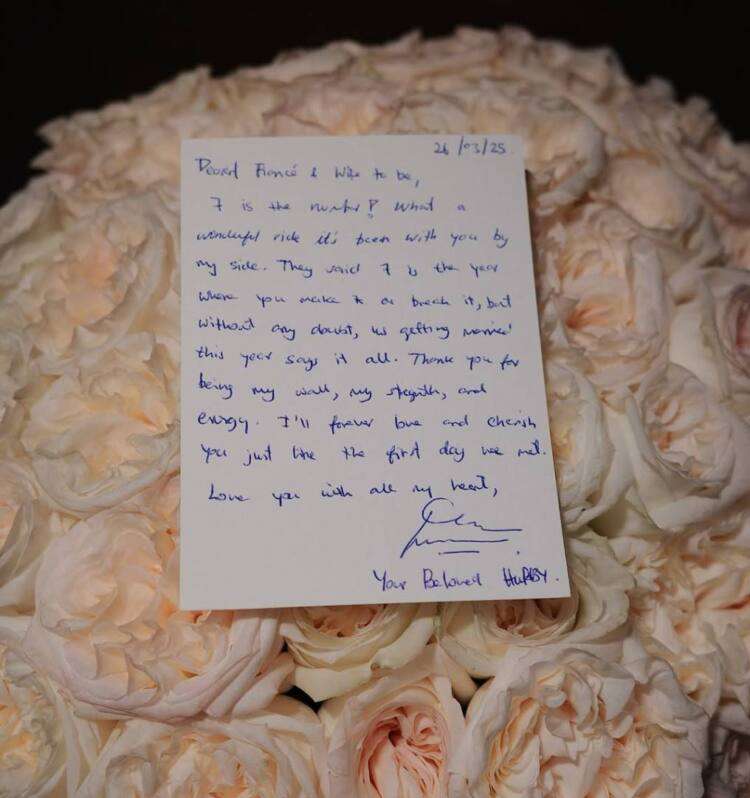 26/03/25.
Dearest Fiancé & Wife to be,
7 is the number? What a
wonderful ride it's been with you by
my side. They said 7 is the year
where you make it or break it, but
without any doubt, us getting married
this year says it all. Thank you for
being my wall, my strength, and
energy. I'll forever love and cherish
you just like the first day we met.
Love you with all my heart,
Your Beloved HUBBY.